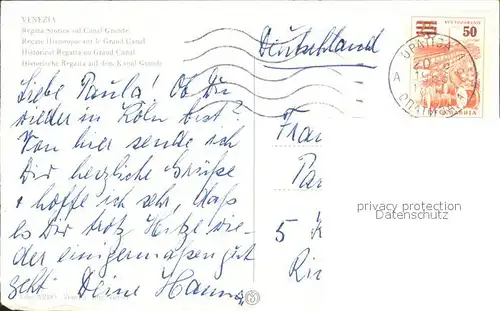 VENEZIA
Regata Storica sul Canal Grande
Regate Historique sur le Grand Canal
Historical Regatta on Grand Canal
Historische Regatta auf dem Kanal Grande
Deutschland
50
OPATIJA
A
Liebe Paula! Ob Du
wieder in Köln bist?
Von hier sende ich
Dir herzliche Grüße
+ hoffe ich sehr, daß
es Dir trotz Hitze wie-
der einigermaßen gut
geht. Deine Hanna
5
privacy protection
Datenschutz